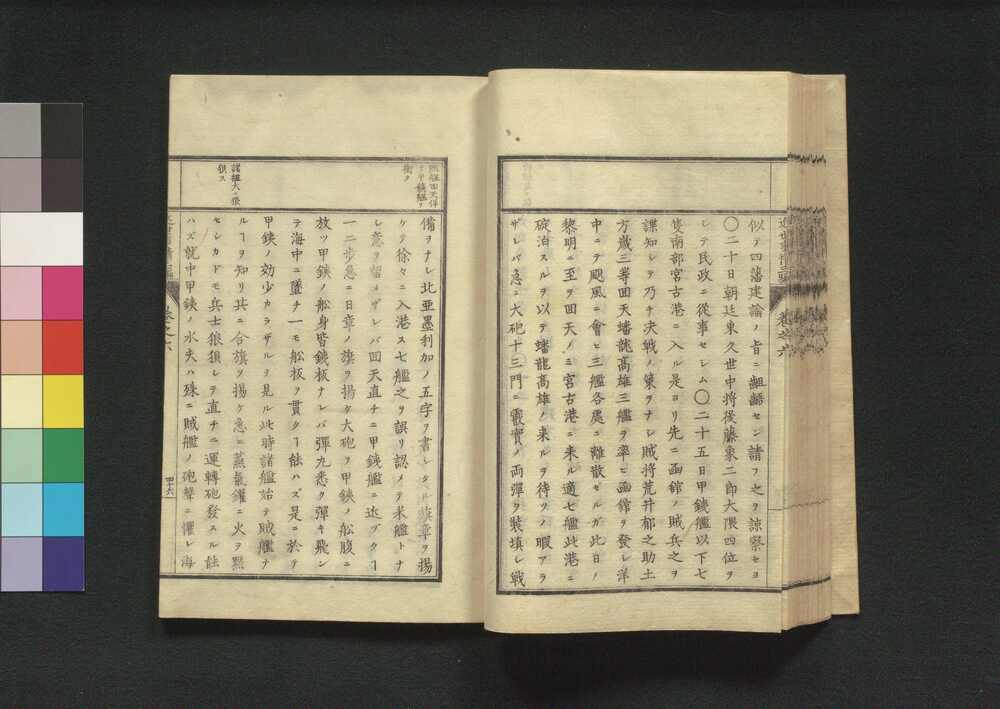 似テ四藩建論ノ旨ニ齟齬セン請フ之ヲ諒察セヨ
〇二十日朝廷東久世中将後藤象二郎大隈四位ヲ
シテ民政ニ從事セレム〇二十五日甲鉄艦以下七
隻南部宮古港ニ入ル是ヨリ先ニ函館ノ賊兵之ヲ
諜知レテ乃チ决戦ノ策ヲナレ賊将荒井郁之助土
方歳三等回天蟠龍髙雄三艦ヲ率ヒ函館ヲ發レ洋
中ニテ颶風ニ會ヒ三艦各處ニ離散セルガ此日ノ
黎明ニ至ヲ回天ノミ宮古港ニ来ル適七艦此港ニ
碇泊スルヲ以テ蟠龍髙雄ノ来ルヲ待ツノ暇アラ
ザレバ急ニ大砲十三門ニ霰實ノ両彈ヲ装填レ戦
近世
巻之六
備ヲナレ北亜墨利加ノ五字ヲ書レタル旗章ヲ揚
ケテ徐々ニ入港ス七艦之ヲ誤リ認メテ米艦トナ
レ意ヲ留メザレバ回天直チニ甲鉄艦ニ近ヅクヿ
一二歩急ニ日章ノ旗ヲ揚ケ大砲ヲ甲鉄ノ舩腹ニ
放ツ甲鉄ノ舩身皆鉄板ナレバ彈丸悉ク彈キ飛ン
テ海中ニ墮チ一モ舩板ヲ貫クヿ能ハズ是ニ於テ
甲鉄ノ効少カラザルヲ見ル此時諸艦始テ賊艦ナ
ルヿヲ知リ共ニ合旗ヲ揚ケ急ニ蒸氣鑵ニ火ヲ㸃
センカドモ兵士狼狽レテ直チニ運轉砲發スル能
ハズ就中甲鉄ノ水夫ハ殊ニ賊艦ノ砲聲ニ懼レ海
賊艦回天
甲鉄艦ヲ
衝ク
諸艦大ニ狼
狽ス
四十六